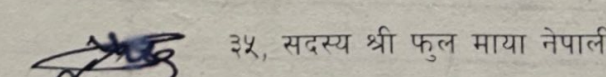 ३५, सदस्य श्री फुल माया नेपाली